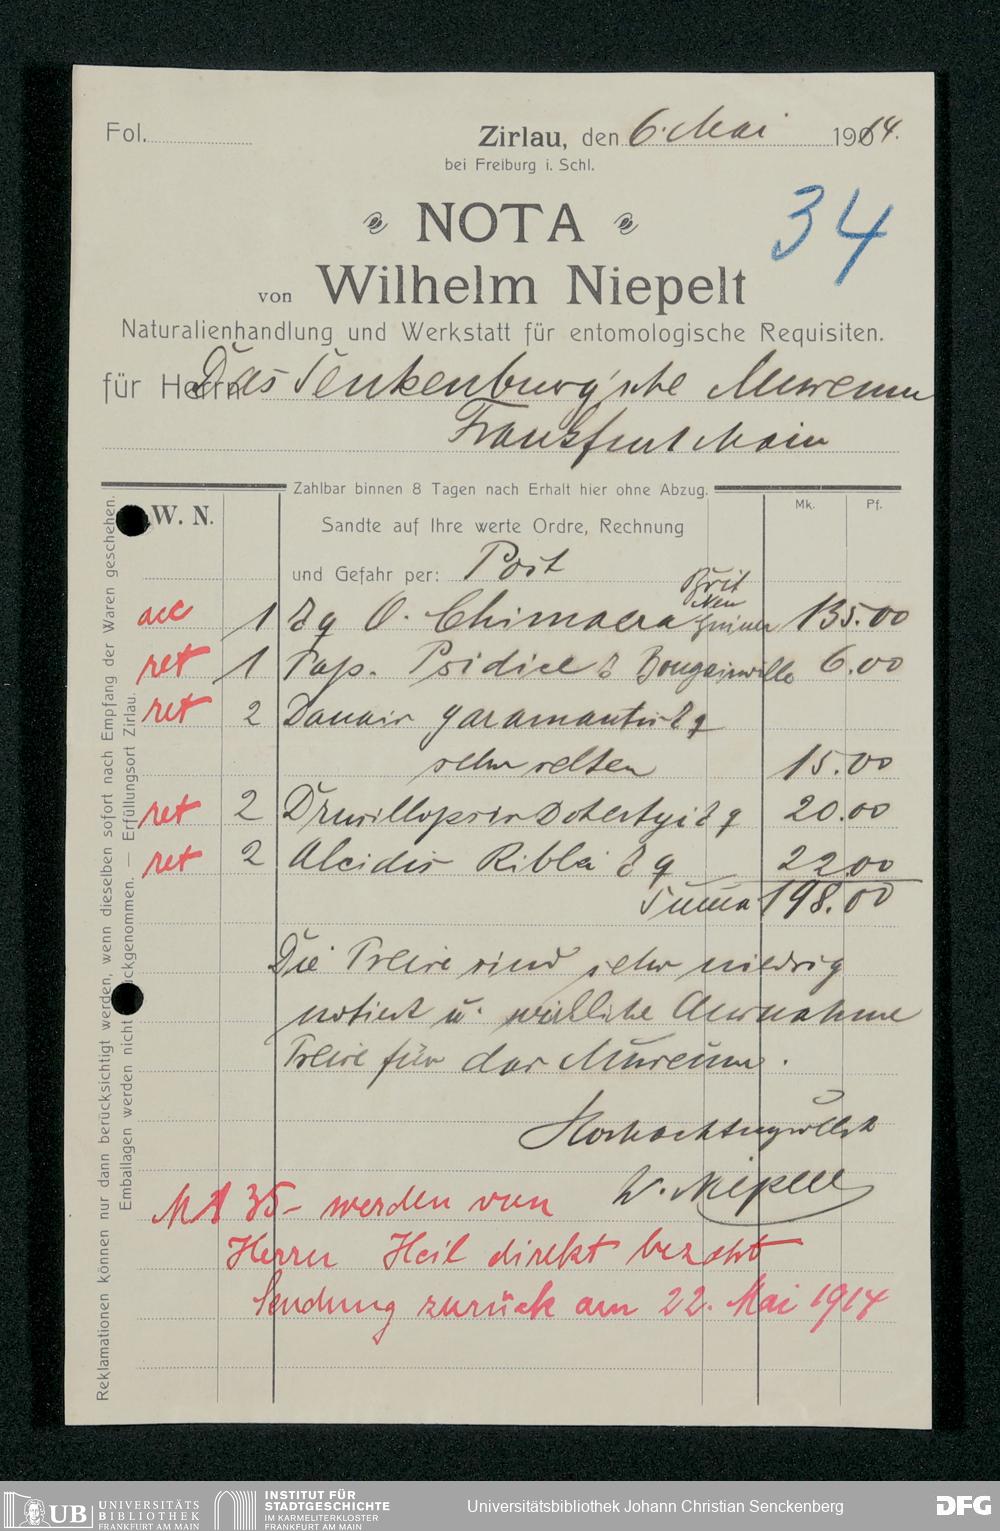 Fol.
Zirlau, den 6. Mai 1914.
bei Freiburg i. Schl.
34
NOTA
von Wilhelm Niepelt
Naturalienhandlung und Werkstatt für entomologische Requisiten.
für Herrn Das Senkenburg'sche Museum
Frankfurt Main
Zahlbar binnen 8 Tagen nach Erhalt hier ohne Abzug.
Mk. Pf.
W. N.
Sandte auf Ihre werte Ordre, Rechnung
und Gefahr per: Post
acc 1 ♂♀ O. Chimaera Brit Neu Guinea 135.00
ret 1 Pap. Psidice ♂ Bougainville 6.00
ret 2 Danais garamantis ♂♀
sehr selten 15.00
ret 2 Drusillopsis Dohertyi ♂♀ 20.00
ret 2 Alcidis Ribbei ♂♀ 22.00
Summa 198.00
Die Preise sind sehr niedrig
notiert u. wirkliche Ausnahme
Preise für das Museum.
Hochachtungsvollst
W. Niepelt
35- werden von
Herrn Heil direkt bezahlt
Sendung zurück am 22. Mai 1914
Reklamationen können nur dann berücksichtigt werden, wenn dieselben sofort nach Empfang der Waren geschehen.
Emballagen werden nicht zurückgenommen. — Erfüllungsort Zirlau.
UB UNIVERSITÄTS
BIBLIOTHEK
FRANKFURT AM MAIN
INSTITUT FÜR
STADTGESCHICHTE
IM KARMELITERKLOSTER
FRANKFURT AM MAIN
Universitätsbibliothek Johann Christian Senckenberg
DFG